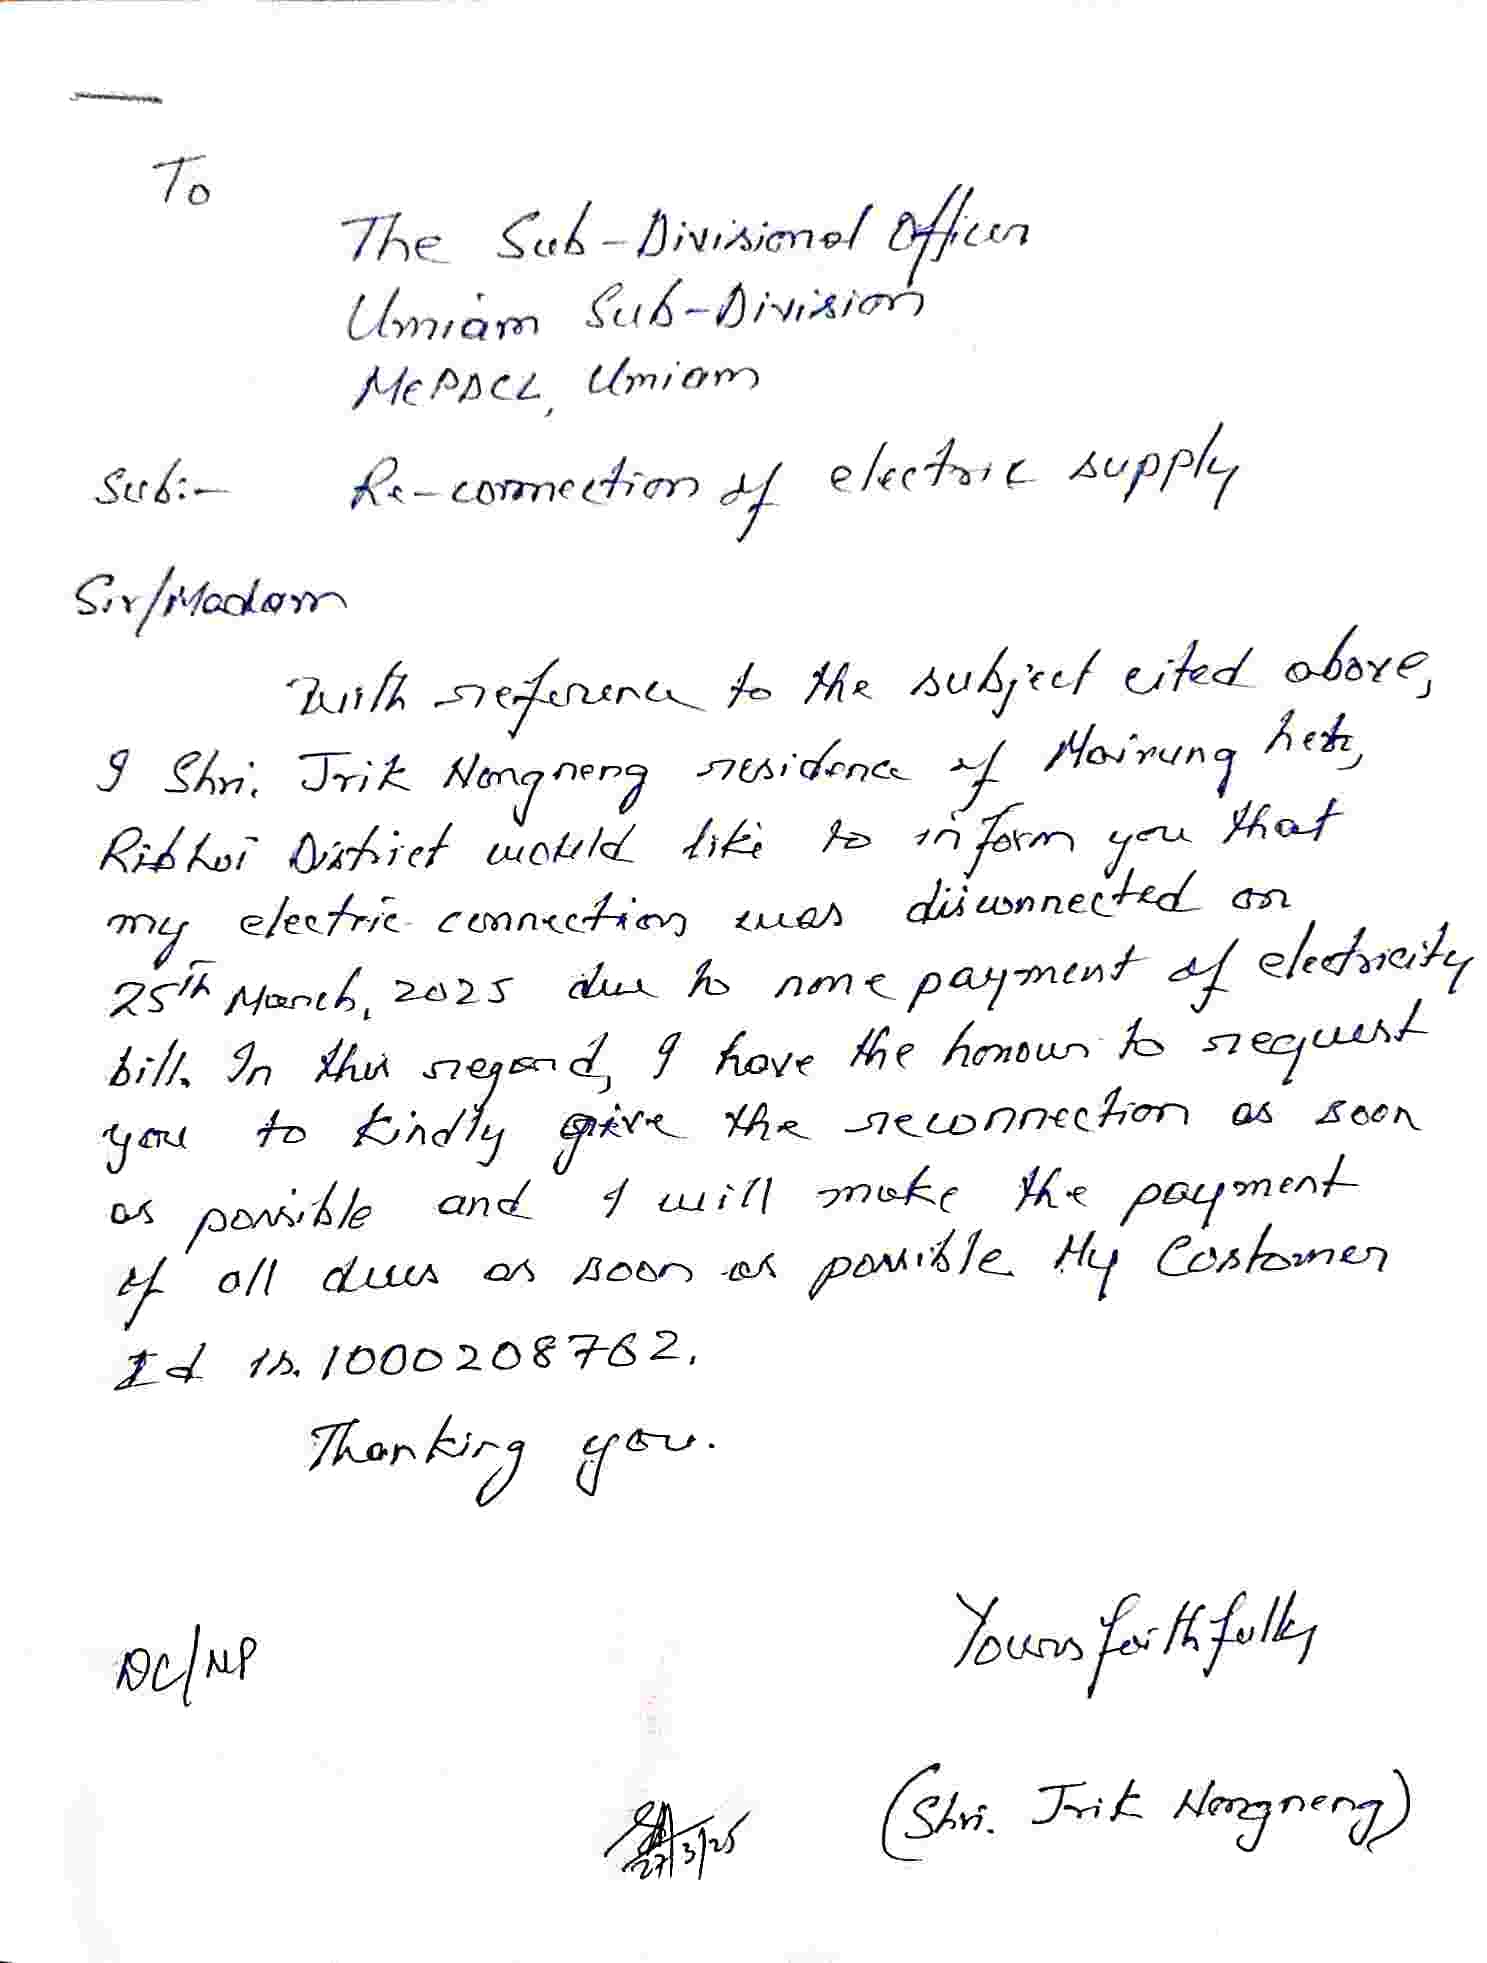 To
The Sub-Divisional Officer
Umiam Sub-Division
MePDCL, Umiam
Sub:- Re-connection of electric supply
Sir/Madam
With reference to the subject cited above,
I Shri. Jrik Nongneng residence of Mairung
Ribhoi District would like to inform you that
my electric connection was disconnected on
25th March, 2025 due to none payment of electricity
bill. In this regard, I have the honour to request
you to kindly give the reconnection as soon
as possible and I will make the payment
of all dues as soon as possible. My Costomer
Id is. 1000208762.
Thanking you.
Yours faithfully
DC/NP
(Shri. Jrik Nongneng)
27/3/25